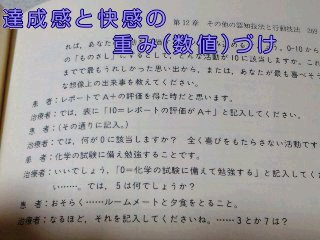 達成感と快感の
重み(数値)づけ
第12章 その他の認知技法と行動技法 269
れば、あなた
0-10から
の「ものさし
10に該当しますか。これ
までで最もうれしかった思い出から、または、あなたが最も喜べそう
な想像上の出来事を教えてください。
患 者：レポートでA＋の評価を得た時だと思います。
治療者：では、表に「10＝レポートの評価がA＋」と記入してください。
患 者：(その通りに記入。)
治療者：では、何が0に該当しますか？ 全く喜びをもたらさない活動です
患 者：化学の試験に備え勉強することです。
治療者：いいでしょう。「0＝化学の試験に備えて勉強する」と記入してくだ
い……。では、5は何でしょうか？
患 者：おそらく……ルームメートと夕食をとること。
治療者：なるほど、それを記入してくださいね。……3とか7は？